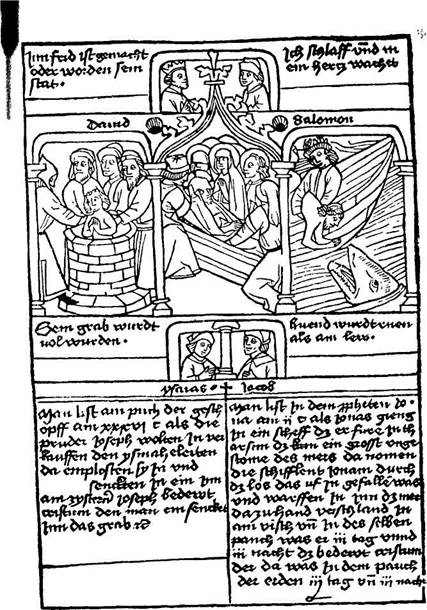 Im frid ist gemacht
oder worden sein
stat.
Ich schlaff vnd m
ein hertz wachet
Dauid
Salomon
Sein grab wurdt
vol wurden.
huend wurdt ruen
als am lew.
ysaias
Jacob
Man list am puch der gesch
opff am xxxvi t als die
pruder Joseph wolten in ver
kauffen den ysmaheleiten
da emplosten sy in vnd
sencktten in ein
am Joseph bedewt
cristum den man ein senckt
Inn das grab
Man list in dem ppheten Jo
na am ij t als Jonas gieng
in ein scheff dz er fure in th
arsim dz kam ein grosse vnge
stome des mers da nomen
die schifflent Jonam durch
dz los das vf in gefalle was
vnd warffen in inn dz mer
da zuhand verschland in
am visch vñ in des selben
pauch was er iij tag vnnd
iij nacht dz bedewt cristum
der da was in dem pauch
der erden iij tag vñ iij nacht